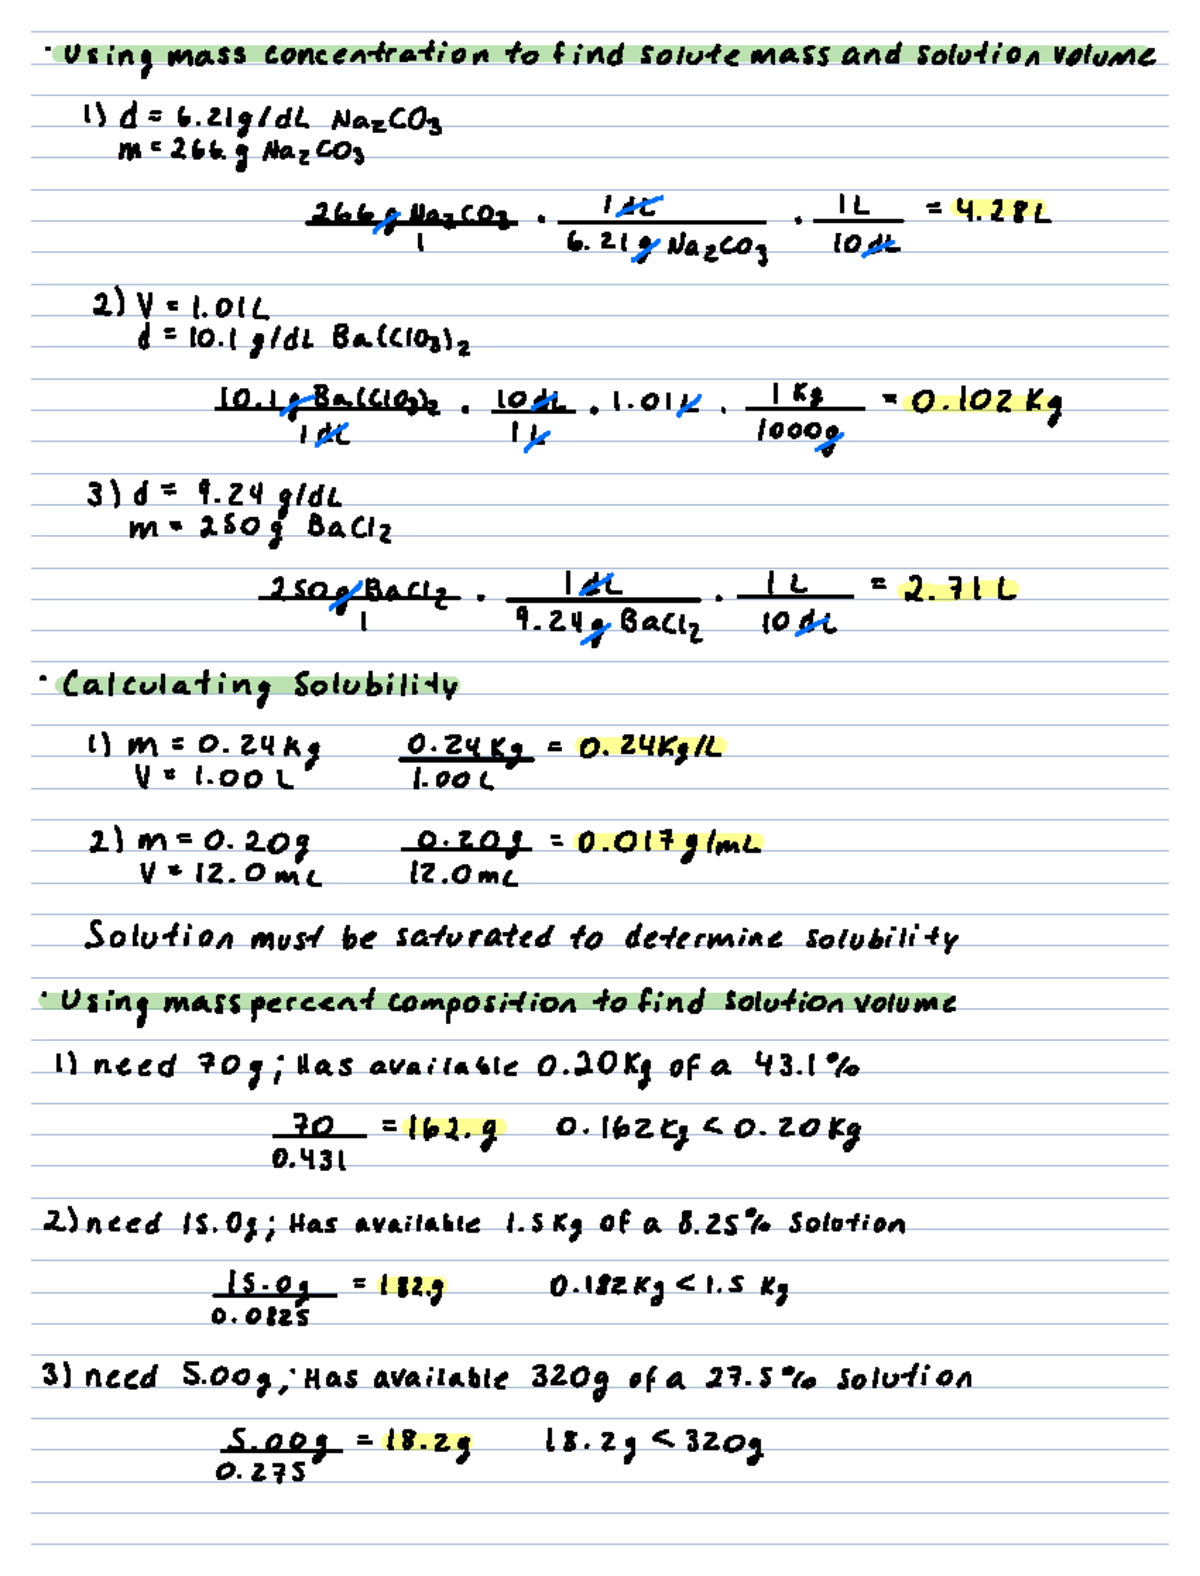 · Using mass concentration to find solute mass and solution volume
1) d = 6.21g/dL Na2CO3
m = 266 g Na2CO3
266 g Na2CO3 / 1 · 1 dL / 6.21 g Na2CO3 · 1L / 10 dL = 4.28L
2) V = 1.01L
d = 10.1 g/dL Ba(ClO3)2
10.1 g Ba(ClO3)2 / 1 dL · 10 dL / 1 L · 1.01 L · 1 Kg / 1000g = 0.102 Kg
3) d = 9.24 g/dL
m = 250 g BaCl2
250 g BaCl2 / 1 · 1 dL / 9.24 g BaCl2 · 1 L / 10 dL = 2.71 L
· Calculating Solubility
1) m = 0.24 kg 0.24 Kg / 1.00 L = 0.24Kg/L
V = 1.00 L
2) m = 0.20g 0.20g / 12.0 mL = 0.017 g/mL
V = 12.0 mL
Solution must be saturated to determine solubility
· Using mass percent composition to find solution volume
1) need 70g; Has available 0.20Kg of a 43.1%
70 / 0.431 = 162. g 0.162 Kg < 0.20 Kg
2) need 15.0g; Has available 1.5 Kg of a 8.25% Solution
15.0g / 0.0825 = 182.g 0.182 Kg < 1.5 Kg
3) need 5.00g; Has available 320g of a 27.5% Solution
5.00g / 0.275 = 18.2g 18.2g < 320g